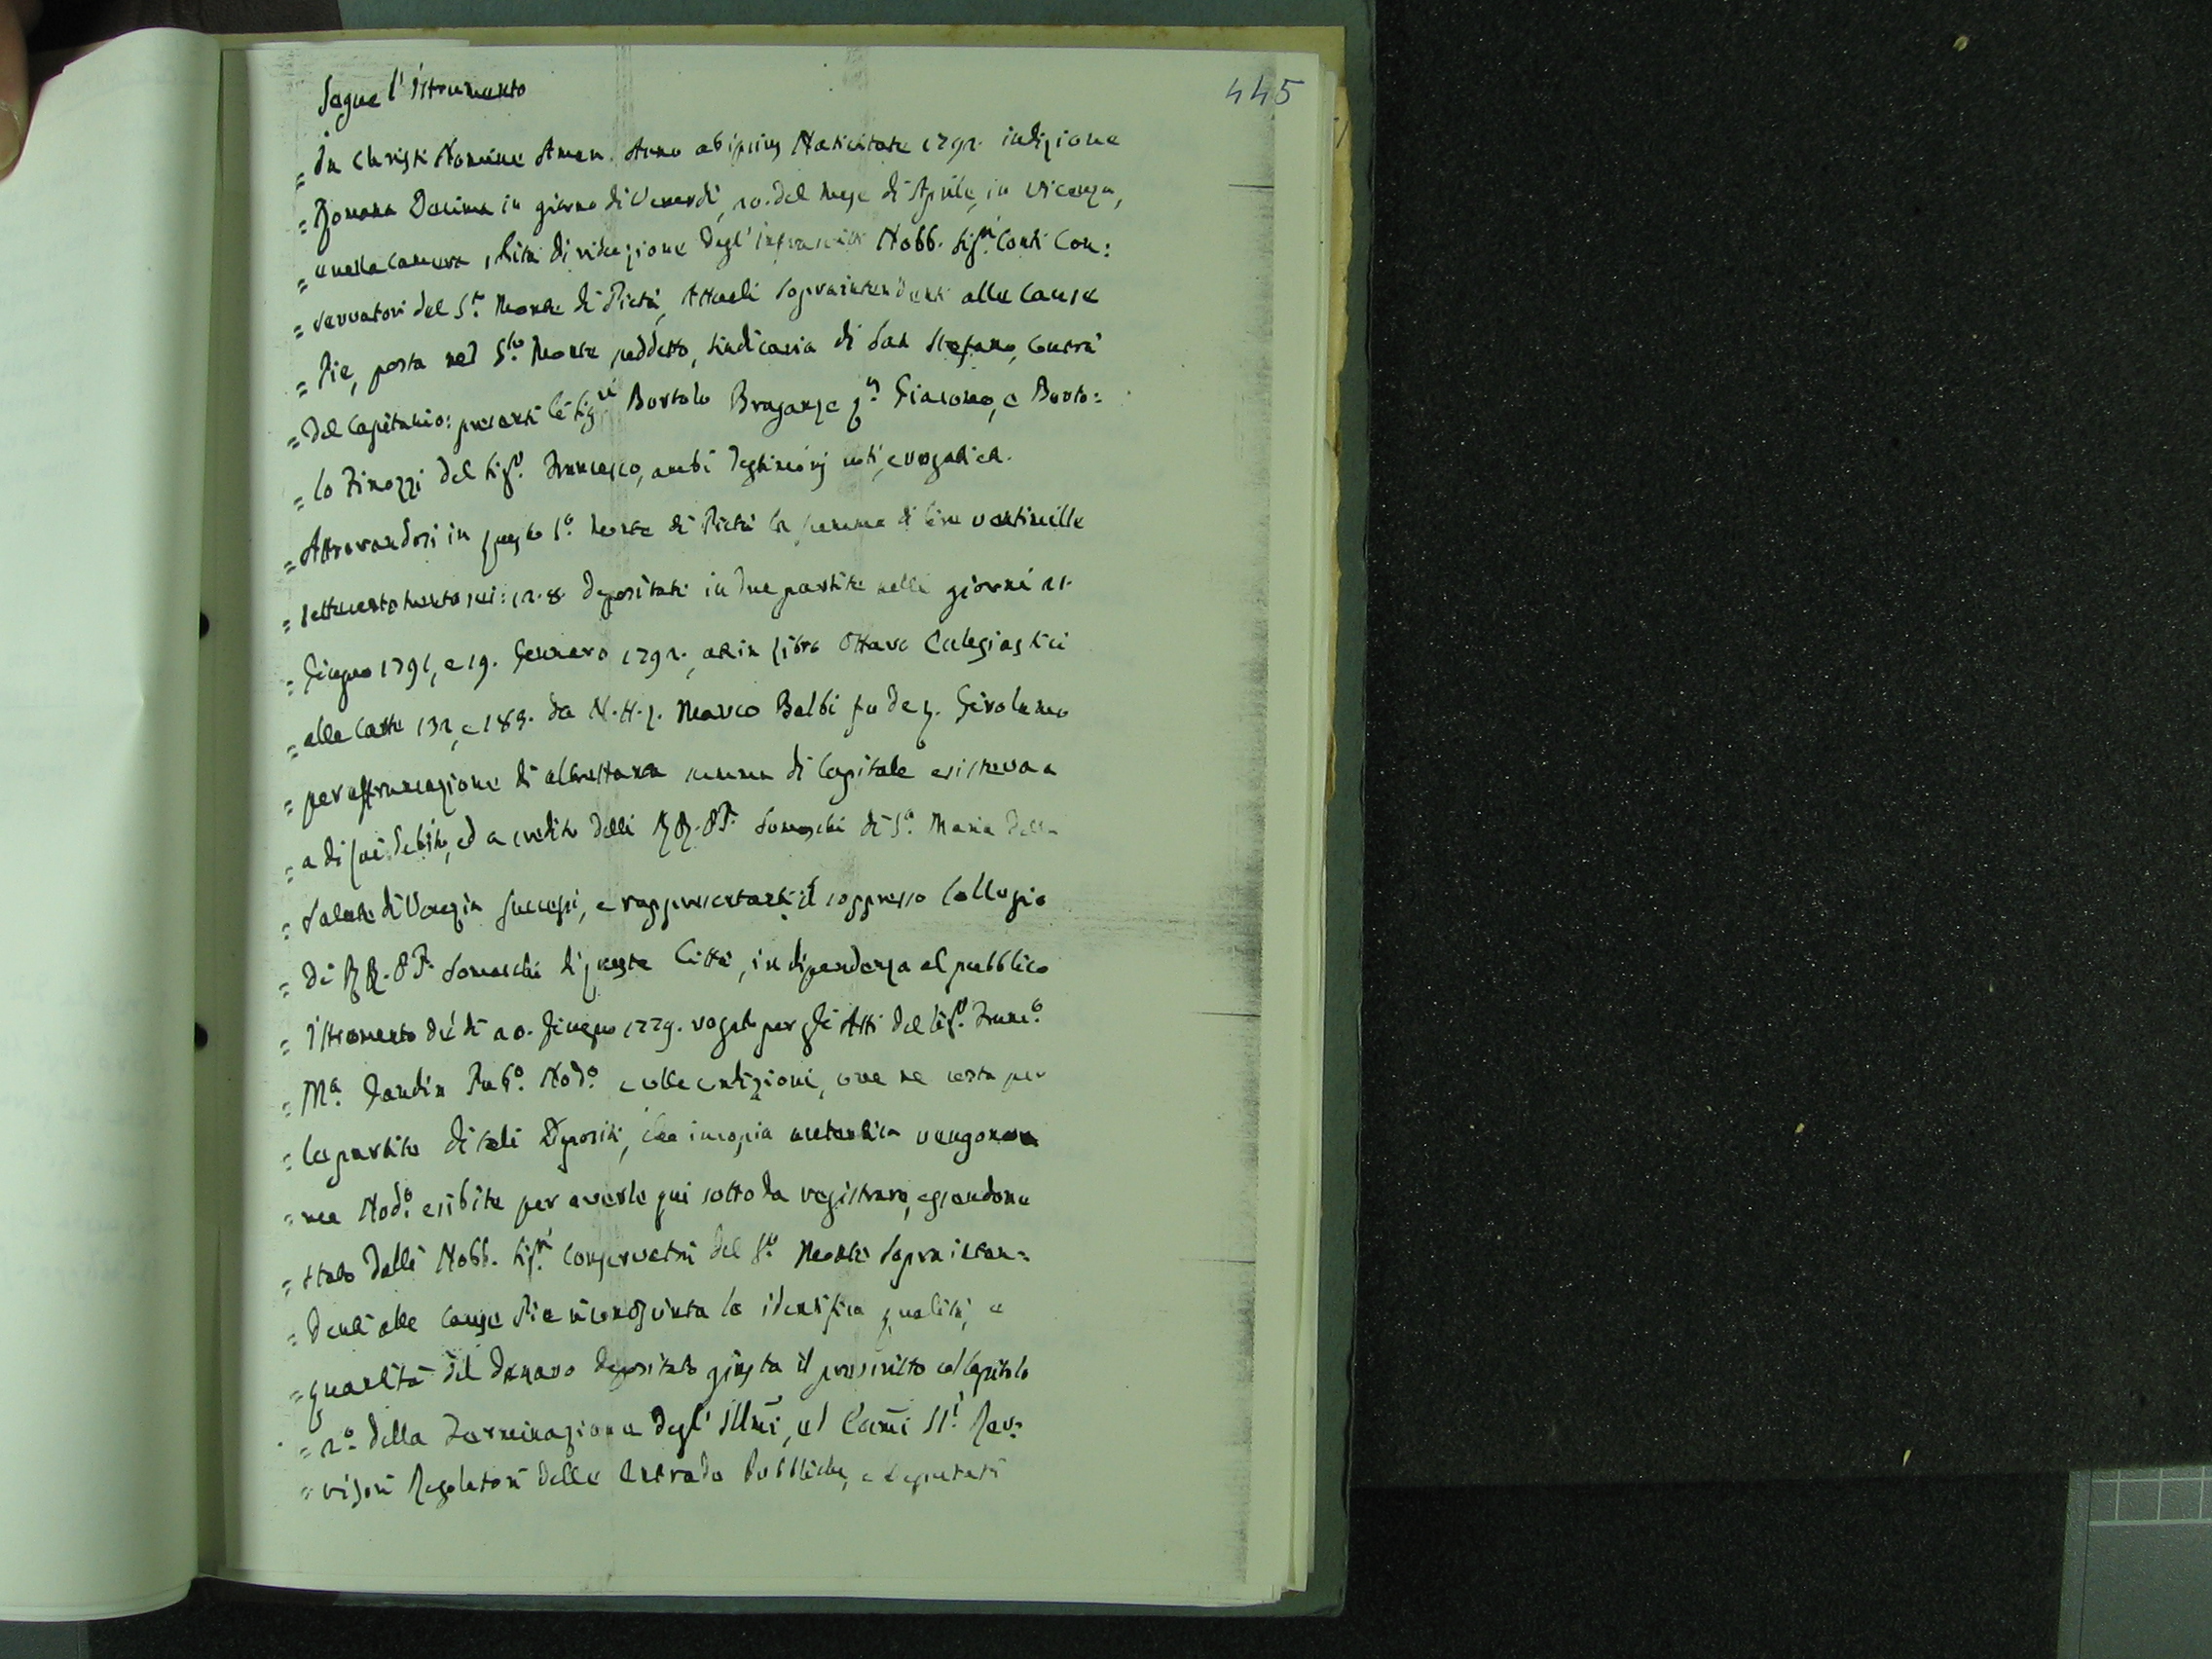 Segue l'Istrumento
445
= In Christi Nomine Amen. Anno ab ipsius Nativitate 1792. indizione
= Romana Decima in giorno di Venerdì, 20. del mese di Aprile, in Vicenza,
= e nella Camera, solita di riduzione degl'infrascritti Nobb. Sigri Conti Con:
= servatori del So. Monte di Pietà, Attuali Sopraintendenti alle Cause
= Pie, posta nel Sto. Monte suddetto, Sindicaria di San Stefano, Contrà
= del Capitanio: presenti li Sigri Bortolo Braganze qm Giacomo, e Borto=
= lo Tinozzi del Sigr. Francesco, ambi Testimonj noti, e vogatiea.
= Attrovandosi in questo So. Monte di Pietà la summa di lire ventimille
= settecento trenta sei: 12.8. depositati in due partite nelli giorni 21.
= Giugno 1791, e 19. Gennaro 1792., ed in Libro Ottavo Eclesiastici
= alle Carte 132, e 189. da N.H. s. Marco Balbi fu de s. Girolamo
= per affrancazione di altrettanta summa di Capitale esisteva a
= a di lui debito, ed a credito delli RR.PP. Somaschi di Sa. Maria della
= Salute di Venezia successi, e rappresentanti il soppresso Collegio
= di RR.PP. Somaschi di questa Città, in dipendenza al pubblico
= Istromento dì di 20. Giugno 1779. rogato per gli Atti del Sigr. Franco.
= Ma. Fandin Pubo. Nodo. e colle condizioni, ove ne resta per
= le partite di tali Depositi, che in copia autentica vengono a
= me Nodo. esibite per averle qui sotto da registrare, essendone
= stato dalli Nobb. Sigri Conservatori del So. Monte Soprainten=
= denti alle Cause Pie riconosciuta la identifica qualità, e
= quantità del denaro depositato giusta il prescritto col Capitolo
= 2o. della Terminazione degl'Illmi, ed Eccmi SSi. Rev:
= visori Regolatori delle Entrade Pubbliche, e Deputati